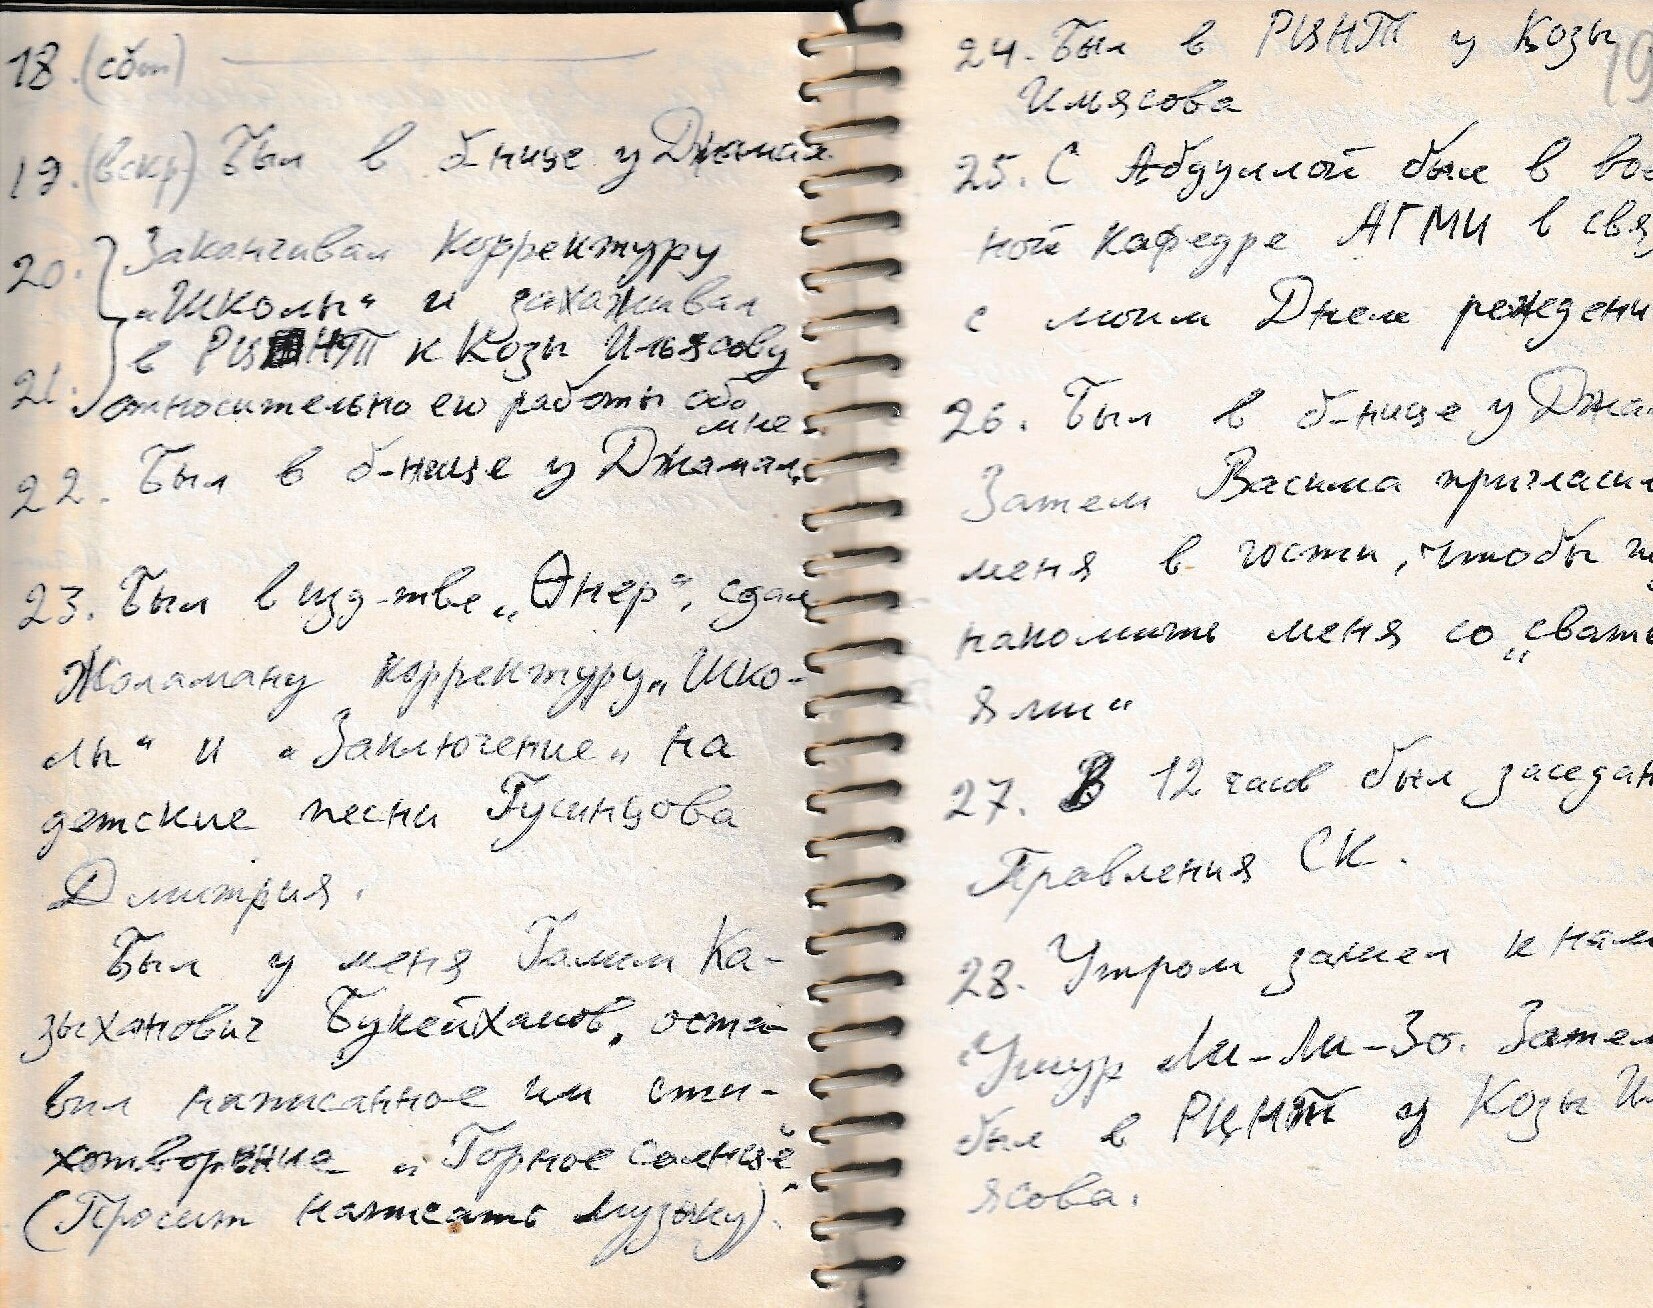 18. (сбт)
19. (вскр) Был в б-нице у Джамал
20. Заканчивал корректуру
„Школы“ и захаживал
в РЦНТ к Козы Ильясову
21. относительно его работы обо
мне.
22. Был в б-нице у Джамал
23. Был в изд-тве „Өнер“, сдал
Жоламану корректуру „Шко-
лы“ и „Заключение“ на
детские песни Гусинцова
Дмитрия.
Был у меня Галим Ка-
зыханович Букейханов, оста-
вил написанное им сти-
хотворение „Горное солнце“
(Просит написать музыку).
24. Был в РЦНТ у Козы
Ильясова
19
25. С Абдуллой был в вое
ной кафедре АГМИ в свя
с моим Днем рождени
26. Был в б-нице у Джа
Затем Васима пригласил
меня в гости, чтобы п
накомить меня со „свать
ями“
27. В 12 часов был заседан
Правления СК.
28. Утром зашел к нам
Ушур Ли-Ли-Зо. Затем
был в РЦНТ у Козы И
ясова.